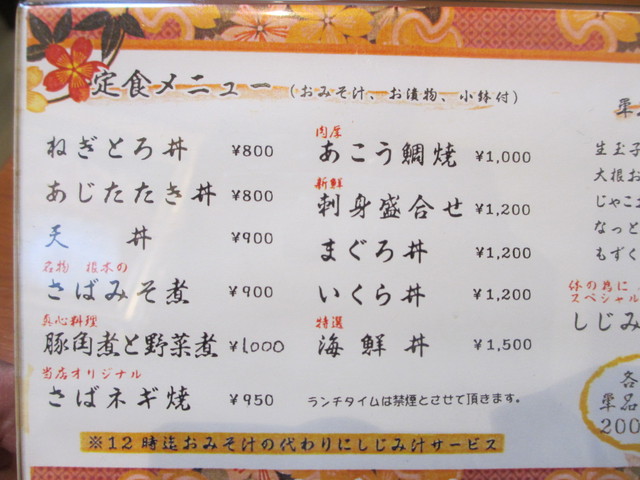 定食メニュー （おみそ汁、お漬物、小鉢付）
ねぎとろ丼 ¥800
あじたたき丼 ¥800
天 丼 ¥900
名物 根本の
さばみそ煮 ¥900
真心料理
豚角煮と野菜煮 ¥1,000
当店オリジナル
さばネギ焼 ¥950
肉厚
あこう鯛焼 ¥1,000
新鮮
刺身盛合せ ¥1,200
まぐろ丼 ¥1,200
いくら丼 ¥1,200
特選
海鮮丼 ¥1,500
ランチタイムは禁煙とさせて頂きます。
※12時迄おみそ汁の代わりにしじみ汁サービス
単
生玉子
大根お
じゃこ
なっと
もずく
体の為に
スペシャル
しじみ
各
単名
200